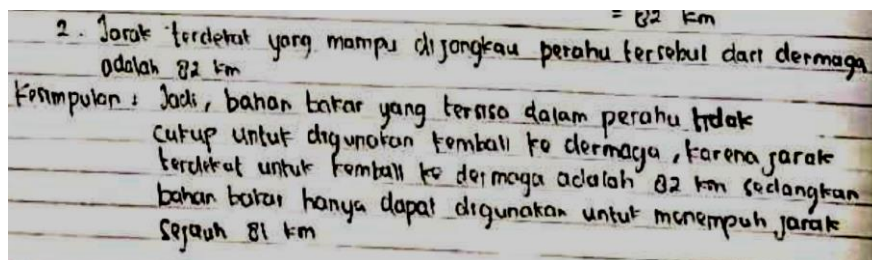 = 82 km
2. Jarak terdekat yang mampu dijangkau perahu tersebut dari dermaga
adalah 82 km
Kesimpulan : Jadi, bahan bakar yang tersisa dalam perahu tidak
cukup untuk digunakan kembali ke dermaga, karena jarak
terdekat untuk kembali ke dermaga adalah 82 km sedangkan
bahan bakar hanya dapat digunakan untuk menempuh jarak
sejauh 81 km